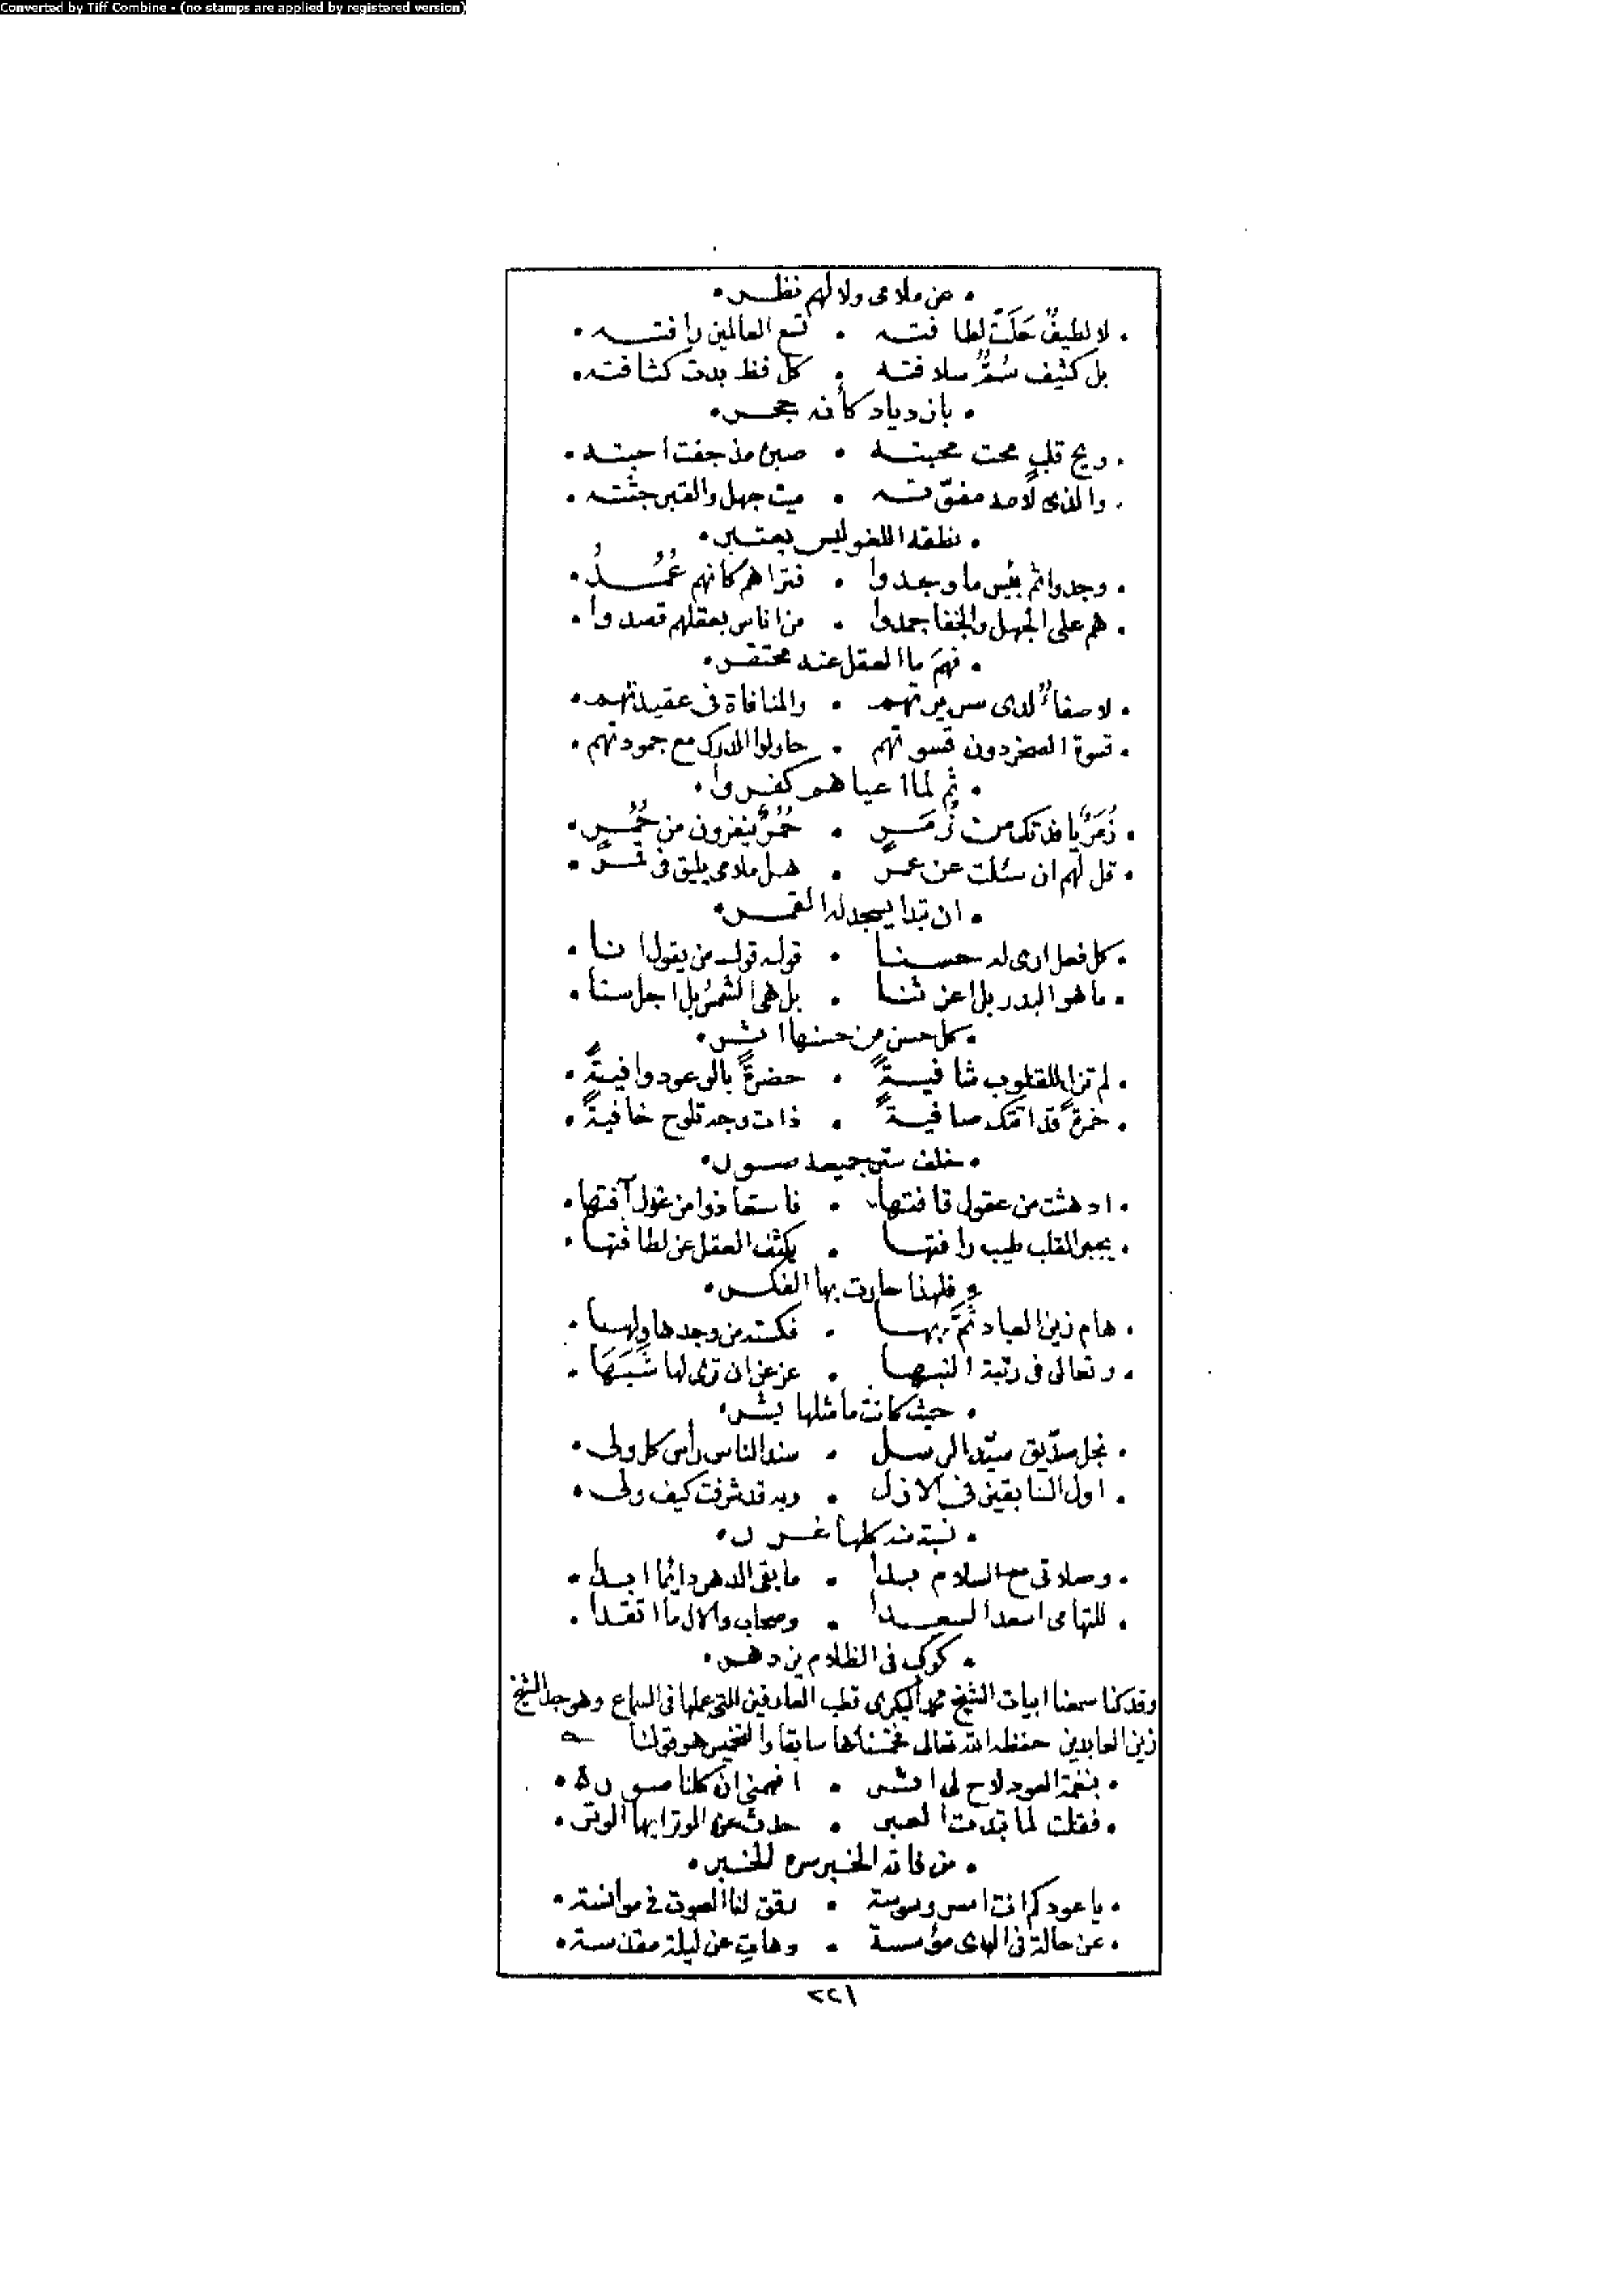 Converted by Tiff Combine - (no stamps are applied by registered version)
• عن ملامى ولا لهم نظر •
• لا لطيفٌ حَكَتْ لطافته • تسع العالمين رافته •
بل كثيف سُمٌّ سلافته • كل فظ بدت كثافته •
• بازدياد كأنه حجر •
• ويح قلبٍ محت محبته • صبرئ مذ جفت احبته •
• والذى لامه مفوّته • ميت جهل والقبر جثته •
• نطقه اللغو ليس يعتبر •
• وجدوا ثم بئس ما وجدوا • فتراهم كانهم عُمُدُ •
• هم على الجهل والخفا جمدوا • من اناس بعقلهم قصدوا •
• فهمَ ما العقل عنه محتقر •
• لا صفاءٌ لدى سريرتهم • والمنافاة فى عقيدتهم •
• قسوة الصخر دون قسوتهم • حاولوا المدرك مع جمودتهم •
• ثم لما اعياهم كفروا •
• زُمَرٌ يا فدتك من زُمَرٍ • حُمُرٌ ينفرون من حُمُرٍ •
• قل لهم ان سئلت عن عمر • هل ملامى يليق فى قمر •
• ان تبدا يسجد له القمر •
• كل فعل ارى له حسنا • قوله قول من يقول انا •
• ما هو البدر بل اعز ثنا • بل هى الشمس بل اجل سنا •
• كل حسن من حسنها اثر •
• لم تزل للقلوب شافيةً • حضرةً بالوعود وافيةً •
• خمرةً قد اتتك صافيةً • ذات وجه تلوح خافيةً •
• خلف ستر جميعه صور •
• ادهشت من عقول قافتها • فاستعاذوا من غول آفتها •
• يجبر القلب طيب رافتها • يكثف العقل عن لطافتها •
• فلهذا حارت بها الفكر •
• هام زين العباد ثَمَّ بها • فكسته من وجدها ولها •
• وتعالى فى رتبة النبها • عز عن ان ترى لها شَبَهَا •
• حيث كانت ما مثلها بشر •
• نجل صدّيق سيّد الرسل • سند الناس رأس كل ولى •
• اول السابقين فى الازل • وبه قد شرفت كيف ولى •
• نسبة منه كلها غرر •
• وصلاتى مع السلام بدا • ما بقى الدهر دائما ابدا •
• للتهامى اسعد السعدا • وصحاب والال ما اتقدا •
• كوكب فى الظلام يزدهر •
وقد كنا سمعنا ابيات الشيخ محمد البكرى قطب العارفين التى عملها فى السماع وهو جد الشيخ
زين العابدين حفظه الله تعالى فخمسناها سابقا والتخميس هو قولنا
• بنغمة العود لاح لى اثر • افهمنى ان كلنا صور •
• فقلت لما تبدت العبر • حدث عن الوتر ايها الوتر •
• من فاته الخبر سره الخبر •
• يا عود كم انت امس وسوسة • رقق لنا الصوت فى موانسة •
• عن حالة فى الهوى مؤسسة • وهات عن ليلة مقدسة •
٢٢١